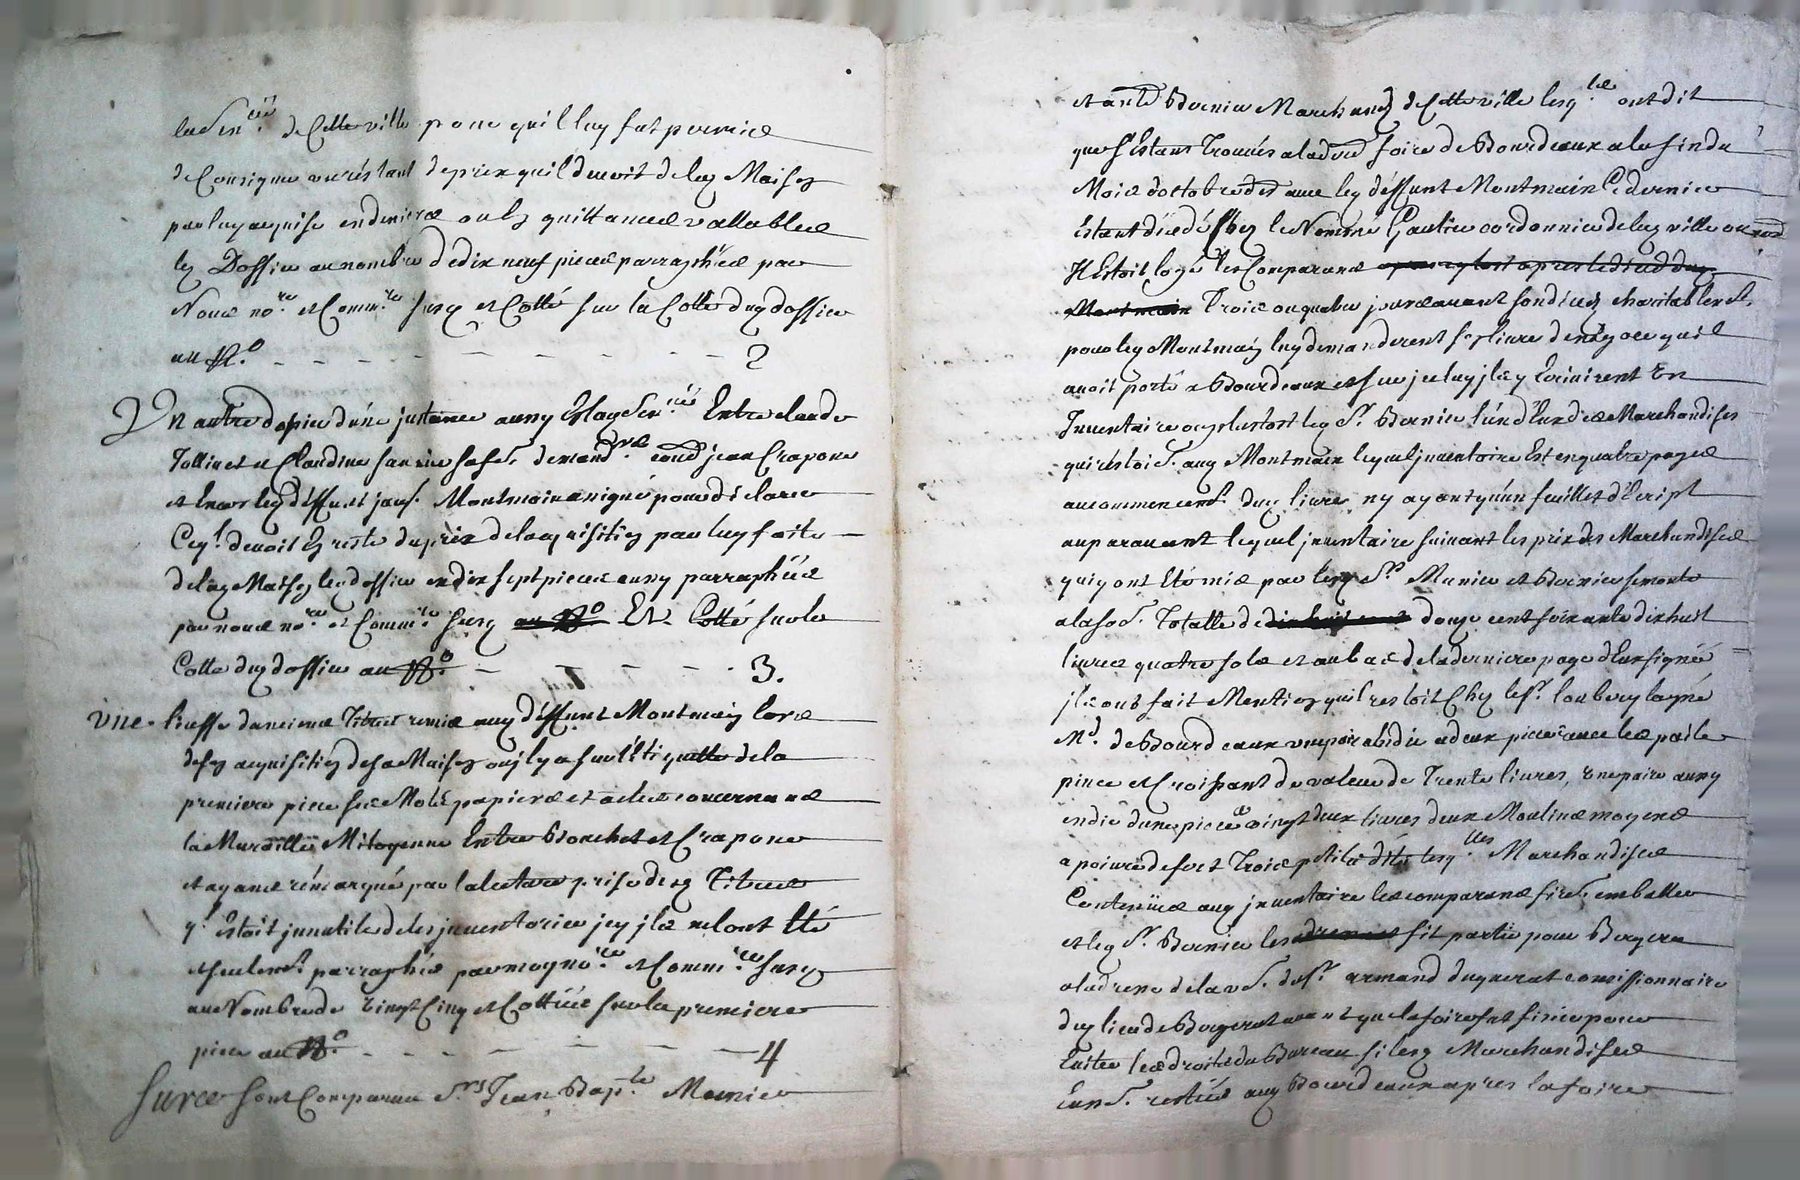 la Sen.ée de Cette ville pour quil luy fut permis
de Consigner du prix quil devoit de lad Maison
par luy acquise en deniers ou en quittances vallables
led Dossier au nombre de dix neuf pieces parraphées par
Nous no.re et Comm.re susd et Cotté sur la Cotte dud dossier
au N.o 2
Un autre dossier dune instance aussy En lad Sen.ée Entre claude
Tollin et Claudine sa fe. demand.rs contre jean Crapone
et Encor led deffunt jos. Montmain assigné pour déclarer
Ce q.l devoit de reste du prix de lacquisition par luy faite
de lad Maison led dossier en dix sept pieces aussy parraphées
par nous no.re et Comm.re susd au N.o Et Cotté sur la
Cotte dud dossier au N.o 3.
Une liasse danciens Titres remis aud deffunt Montmain lors
de son acquisition de sa Maison ou il y a sur l'étiquette de la
premiere piece papiers et actes concernans
la Muraille Mitoyenne Entre Bouchet et Crapone
et ayans rémarqué par la lecture prise desd Titres
q.l Estoit innutile de les inventorier icy ils nont Eté
seulem.t parraphés par moy no.re et Comm.re susd
au Nombre de vingt Cinq et Cottées sur la premiere
piece au N.o 4
Surce sont Comparus S.rs Jean Bap.te Mernier
et Bernier Marchands de Cette ville lesq.ls ont dit
que s'Estans Trouvés a la foire de Bourdeaux a la fin du
Mois d'octobre avec led deffunt Montmain Ce dernier
Estant décédé Chez le Nommé Gautier cordonnier de lad ville ou
Il Estoit logé les Comparans
Trois ou quatre jours avant son décès
pour led Montmain luy demanderent son livre de négoce quil
avoit porté a Bourdeaux et sur iceluy ils y Ecrivirent Un
Inventaire led S.r Bernier l'un d'Eux des Marchandises
qui restoi.t aud Montmain lequel inventaire Est en quatre pages
au commencem.t dud livre ny ayant qu'un feuillet d'Ecript
auparavant lequel inventaire suivant les prix des Marchandises
qui y ont Eté mis par lesd S.rs Mernier et Bernier se monte
a la so.e Totalle de douze cent soixante dix huit
livres quatre sols et au bas de la derniere page d'Eux signée
ils ont fait Mention quil restoit Chez le S.r
M.d de Bourdeaux une paire a deux pieces avec les
pince et Croissant de valeur de Trente livres, Une paire aussy
dune piece vingt deux livres deux Moulins moyens
a poivre de fer et Trois petits lesq.lles Marchandises
Contenües aud inventaire les comparans fire.t emballer
et led S.r Bernier les fit partir pour Bergerac
a ladresse de la v.e du S.r armand comissionnaire
dud lieu de Bergerac avant que la foire fut finie pour
Eviter les droits du Bureau si lesd Marchandises
Eus.t restées aud Bourdeaux apres la foire